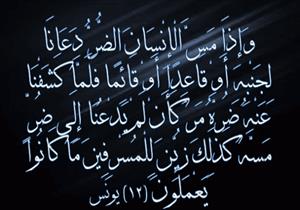 وَإِذَا مَسَّ الْإِنْسَانَ الضُّرُّ دَعَانَا
لِجَنْبِهِ أَوْ قَاعِدًا أَوْ قَائِمًا فَلَمَّا كَشَفْنَا
عَنْهُ ضُرَّهُ مَرَّ كَأَنْ لَمْ يَدْعُنَا إِلَى ضُرٍّ
مَسَّهُ كَذَلِكَ زُيِّنَ لِلْمُسْرِفِينَ مَا كَانُوا
يَعْمَلُونَ (١٢) يونس